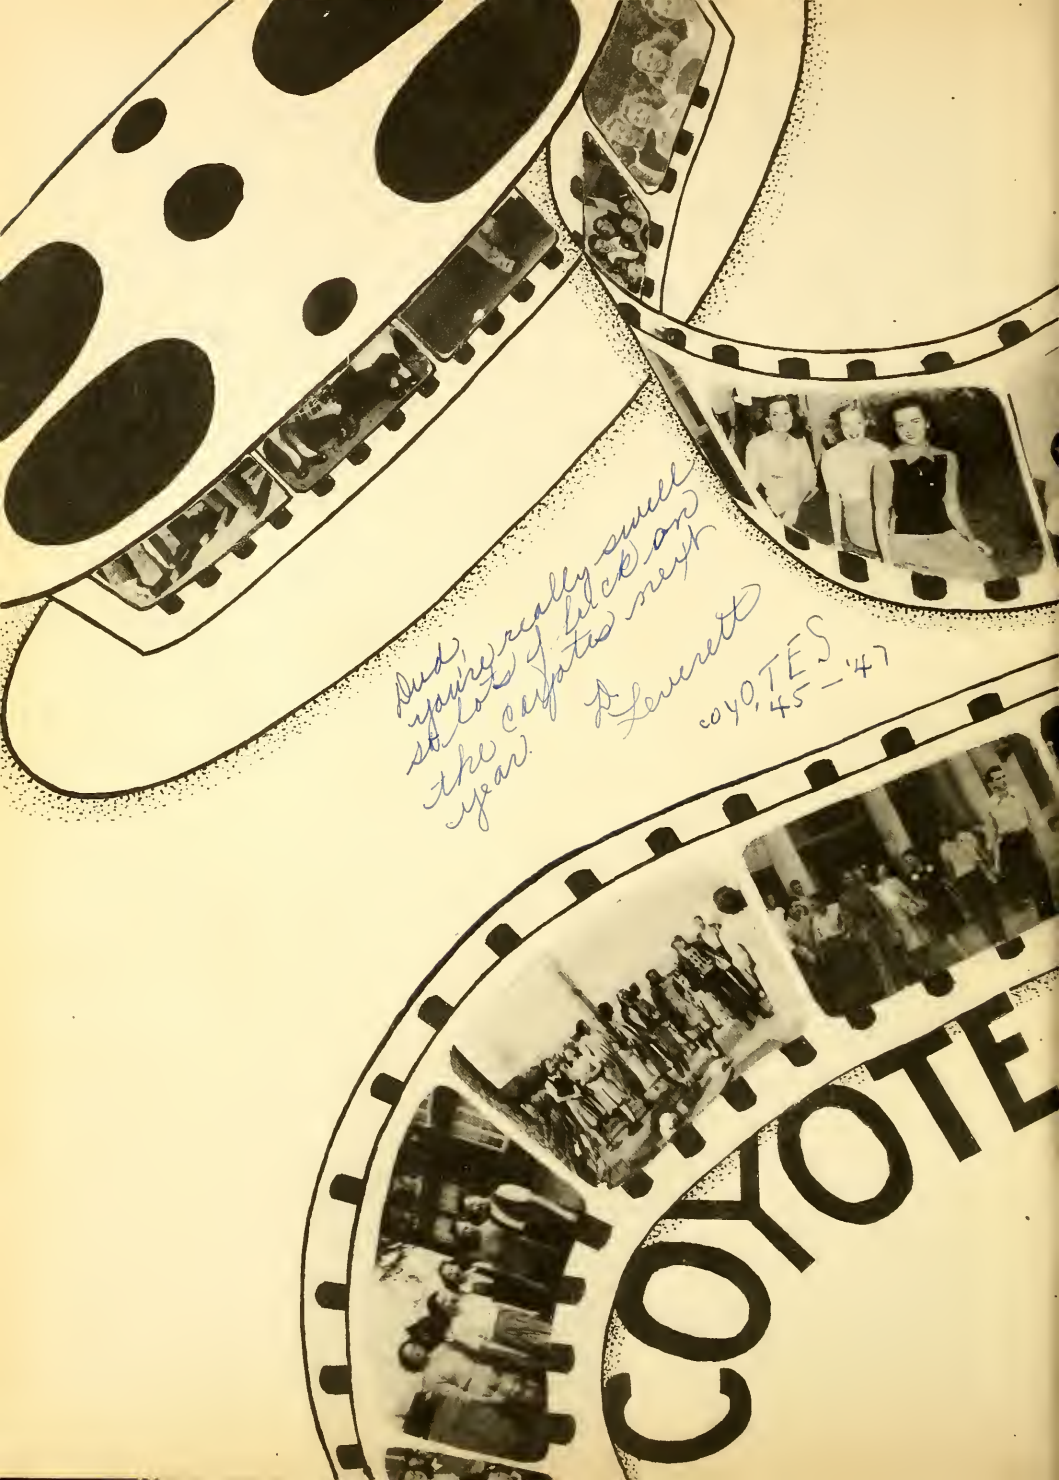 Dud,
you're really swell
so lots of luck on
the Coyotes next
year.
D Leverett
COYOTES
45-'47
COYOTE